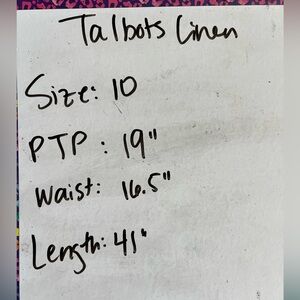 Talbots Linen
Size: 10
PTP : 19"
Waist: 16.5"
Length: 41"